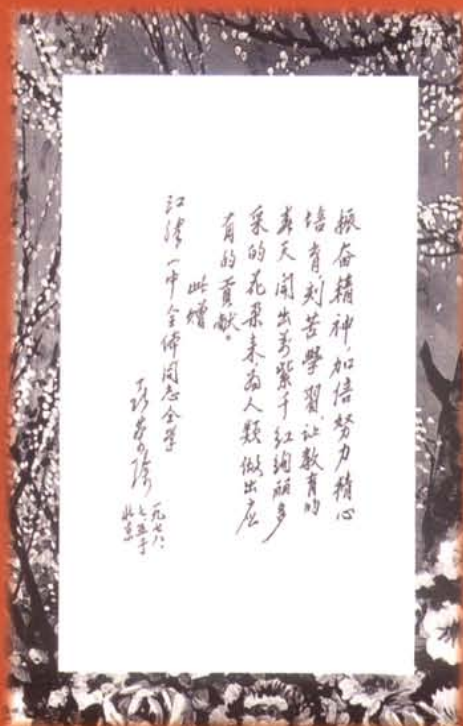 振奋精神,加倍努力精心
培育刻苦學習,让教育的
春天開出万紫千红绚丽多
采的花果来,为人類做出应
有的貢献。
此赠
江津一中全体同志全学
一九七八、
七、五于
北京